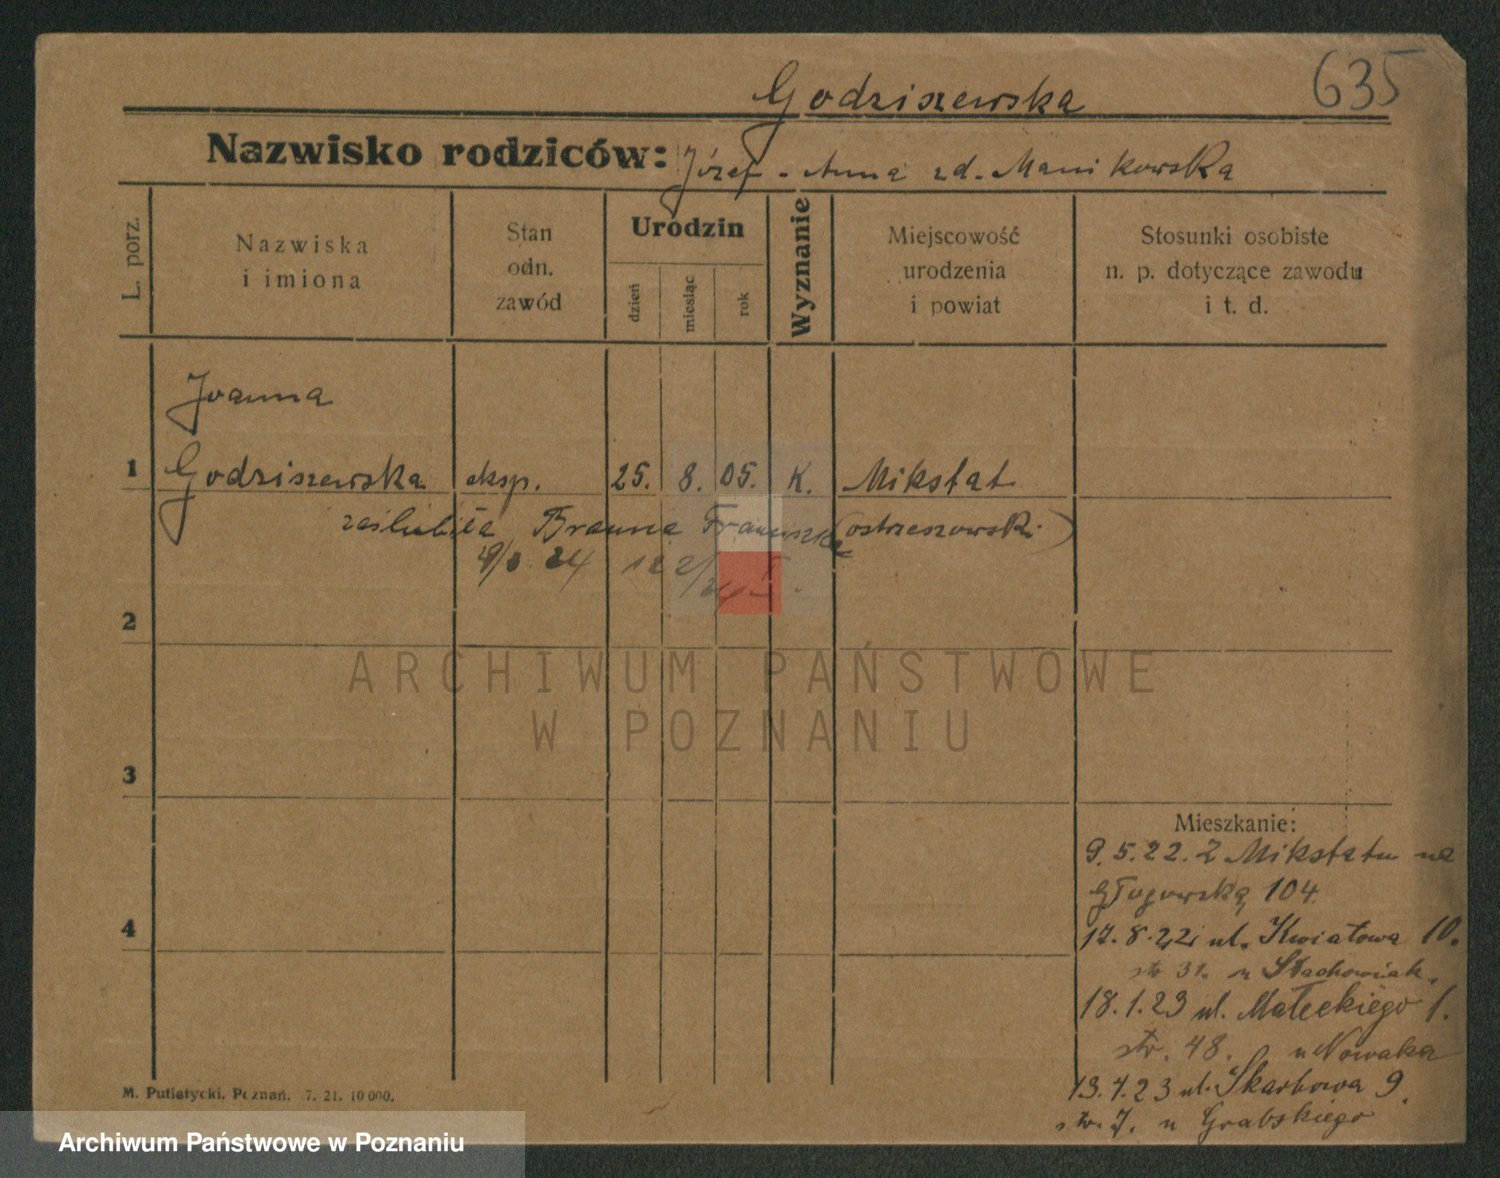 635
Godziszewska
Nazwisko rodziców: Józef - Anna zd. Manikowska
L. porz.
Nazwiska i imiona
Stan odn. zawód
Urodzin
dzień
miesiąc
rok
Wyznanie
Miejscowość urodzenia i powiat
Stosunki osobiste n. p. dotyczące zawodu i t. d.
Joanna
1 Godziszewska eksp. 25. 8. 05. K. Mikstat
zaślubiła Brauna Franciszka (ostrzeszowski)
24
2
3
4
Mieszkanie:
9.5.22. Z Mikstatu na
Głogowską 104.
17.8.22 ul. Kwiatowa 10.
str 31. u Stachowiak.
18.1.23 ul. Małeckiego 1.
str. 48. u Nowaka
13.7.23 ul. Skarbowa 9.
str. 7. u Grabskiego
M. Putiatycki, Poznań. 7. 21. 10 000.
ARCHIWUM PAŃSTWOWE
W POZNANIU
Archiwum Państwowe w Poznaniu